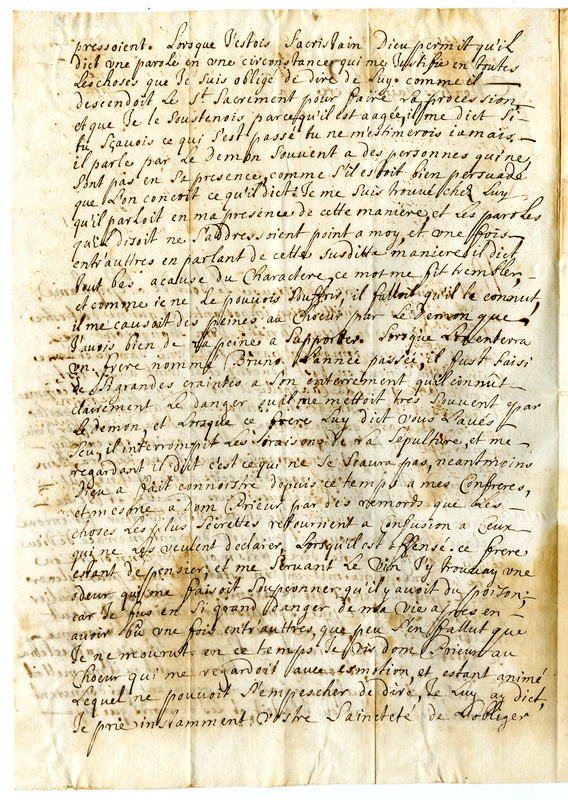 pressoient. Lorsque J'estois Sacristain Dieu permit qu'il
dict une parole en une circonstance qui me Justifie en toutes
Les choses que Je suis obligé de dire de Luy. comme il
descendoit Le St. Sacrement pour faire La procession,
et que Je le soustenois parcequ'il est aagée, il me dict Si
tu sçavois ce qui s'est passé tu ne m'estimerois iamais.
il parle par Le Demon souvent a des personnes qui ne
sont pas en sa presence comme s'il estoit bien persuadé
que L'on conçoit ce qu'il dict. Je me suis trouvé chez Luy
qu'il parloit en ma presence de cette maniere, et Les paroles
qu'il disoit ne s'addressoient point a moy, et une fois
entr'auttres en parlant de cette susditte maniere il dict
tout bas acause du Charactere, ce mot me fit trembler,
et comme ie ne Le pouvois souffrir, il falloit qu'il le connut,
il me causoit des peines au Choeur par Le Demon que
J'avois bien de La peine a supporter. Lorsque L'on enterra
un frere nommé Bruno L'année passée, il fust saisi
de si grandes craintes a son enterrement qu'il connut
clairement Le danger ou il me mettoit tres souvent par
Le demon, et Lorsque ce frere Luy dict vous L'avés
sçu, il interrompit Les oraisons de La sepulture, et me
regardant il dict c'est ce qui ne se sçaura pas, neantmoins
Dieu a fait connoistre depuis ce temps a mes Confreres,
et mesme a Dom Prieur par des remords que Les
choses Les plus secrettes retournent a confusion a ceux
qui ne Les veulent declarer, Lorsqu'il est offensé. ce frere
estant depensier, et me servant Le vin J'y trouvay une
odeur qui me faisoit soupçonner qu'il y avoit du poison;
car Je fus en si grand danger de ma vie apres en
avoir bû une fois entr'auttres, que peu s'en fallut que
Je ne mourus. en ce temps Je vis dom Prieur au
Choeur qui me regardoit avec esmotion, et estant animé
Lequel ne pouvoit s'empescher de dire, Je Luy ay dict,
Je prie instamment vostre Sainteté de L'obliger